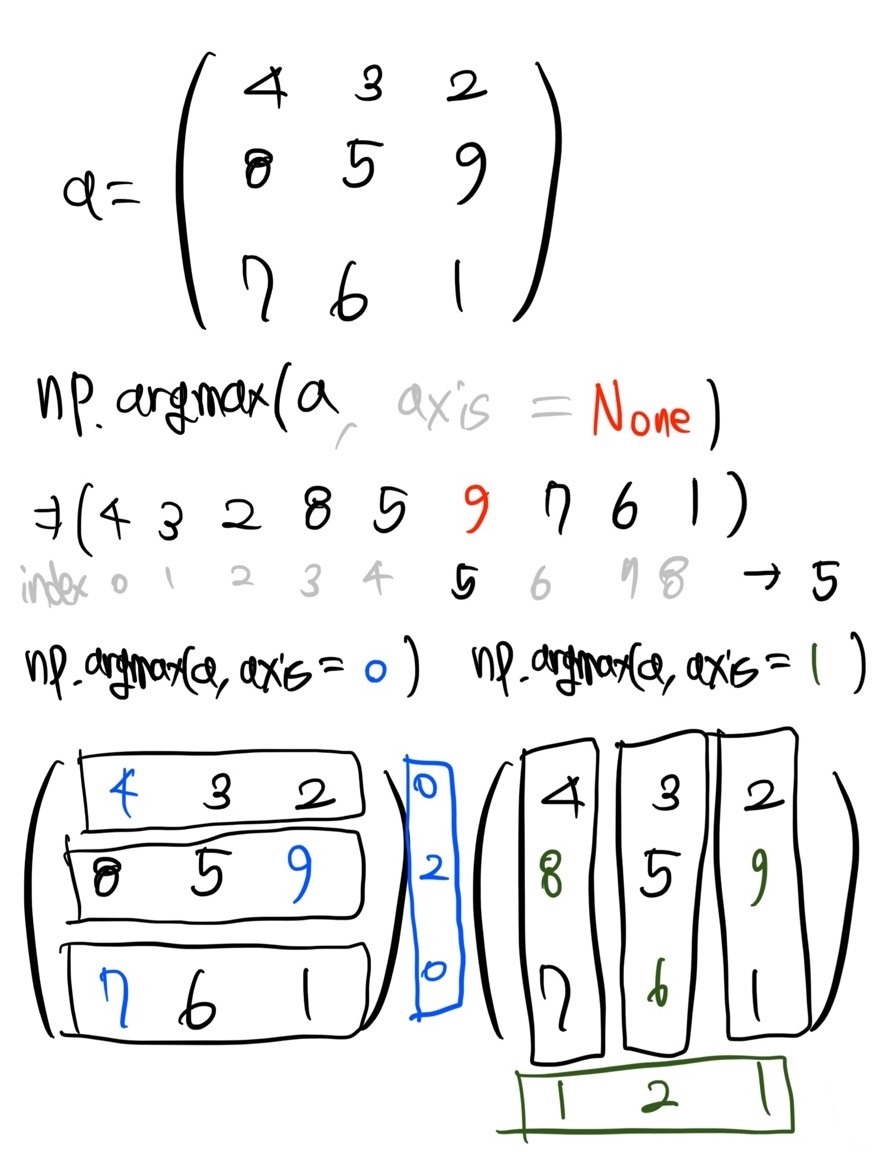 4 3 2
a= 8 5 9
7 6 1
np.argmax(a, axis = None)
⇒(4 3 2 8 5 9 7 6 1)
index 0 1 2 3 4 5 6 7 8 → 5
np.argmax(a, axis = 0) np.argmax(a, axis = 1)
4 3 2 0 4 3 2
8 5 9 2 8 5 9
7 6 1 0 7 6 1
1 2 1